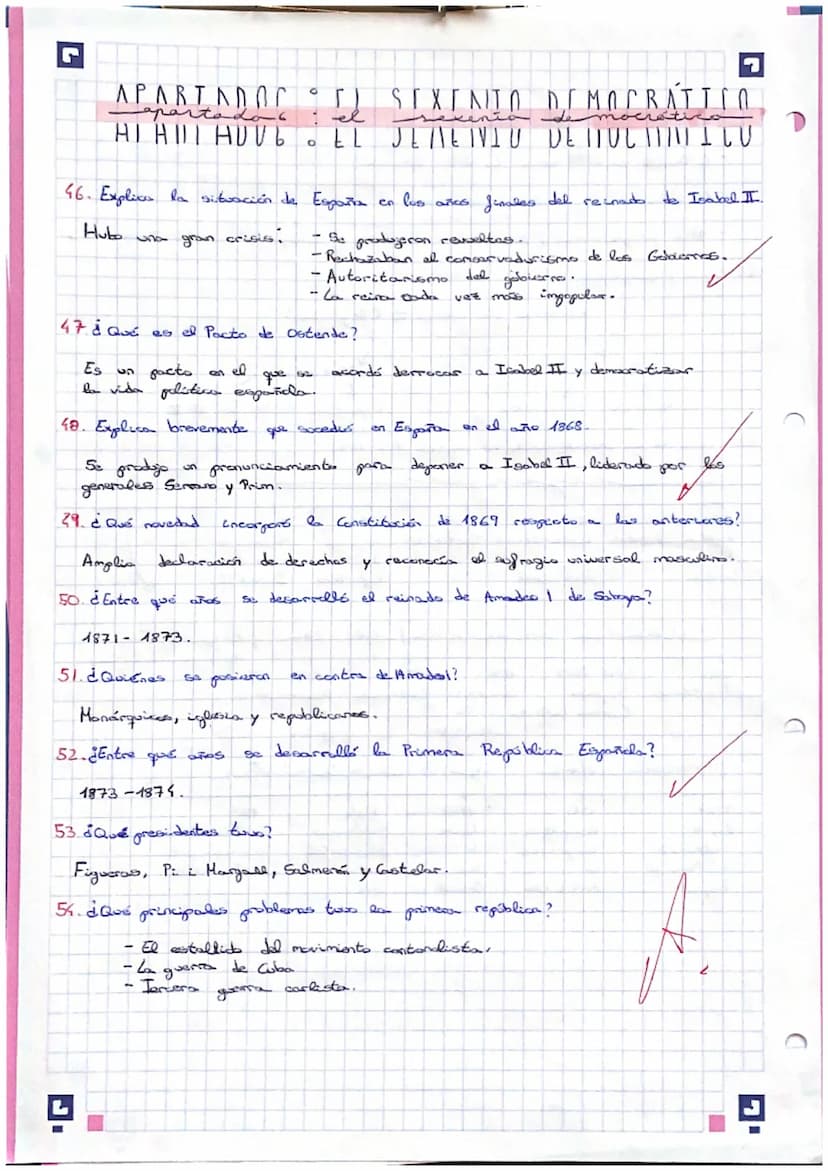 APARTADO 6 : EL SEXENIO DEMOCRÁTICO
apartado 6 : el sexenio democrático
46. Explica la situación de España en los años finales del reinado de Isabel II.
Hubo una gran crisis: - Se produjeron revueltas.
- Rechazaban el conservadurismo de los Gobiernos.
- Autoritarismo del gobierno.
- La reina cada vez más impopular.
47 ¿Qué es el Pacto de Ostende?
Es un pacto en el que se acordó derrocar a Isabel II y democratizar
la vida política española.
48. Explica brevemente que sucedió en España en el año 1868.
Se produjo un pronunciamiento para deponer a Isabel II, liderado por los
generales Serrano y Prim.
49. ¿Qué novedad incorporó la Constitución de 1869 respecto a las anteriores?
Amplia declaración de derechos y reconocía el sufragio universal masculino.
50. ¿Entre qué años se desarrolló el reinado de Amadeo I de Saboya?
1871 - 1873.
51. ¿Quiénes se pusieron en contra de Amadeo I?
Monárquicos, iglesia y republicanos.
52. ¿Entre qué años se desarrolló la Primera República Española?
1873 - 1874.
53 ¿Qué presidentes tuvo?
Figueras, Pi i Margall, Salmerón y Castelar.
54. ¿Qué principales problemas tuvo la primera república?
- El estallido del movimiento cantonalista.
- La guerra de Cuba
- Tercera guerra carlista.